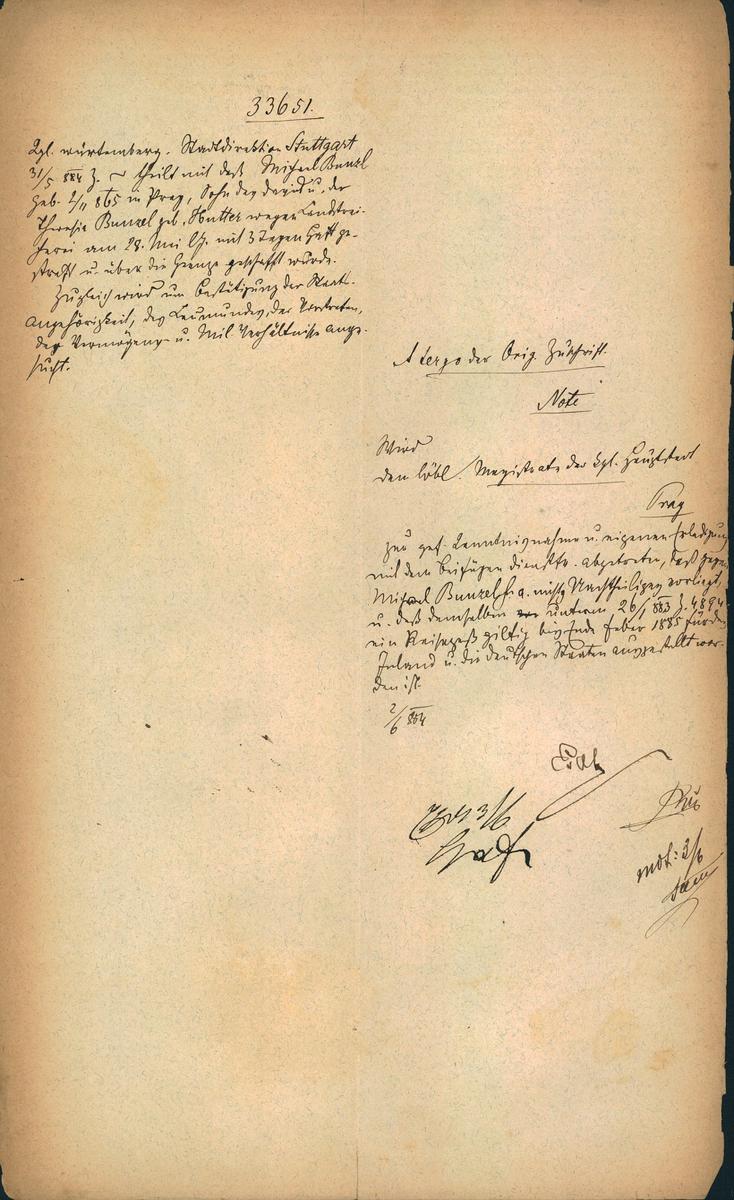 33651.
Kgl. württemberg. Stadtdirektion Stuttgart
31/5 884 Z. ~ theilt mit daß Michael Bunzl
geb. 2/11 865 in Prag, Sohn des David u. der
Theresie Bunzel geb. Hutter wegen Landstrei-
cherei am 28. Mai l. J. mit 3 Tagen Haft ge-
straft u. über die Grenze geschafft wurde.
Zugleich wird um Bestätigung der Staats-
angehörigkeit, des Leumundes, der Vorstrafen,
der Vermögens- u. Mil. Verhältnisse ange-
sucht.
A tergo der Orig. Zuschrift.
Note
Wird
den löbl. Magistrate der kgl. Hauptstadt
Prag
zur gef. Kenntnisnahme u. eigenen Erledigung
mit dem Beifügen dienstfr. abgetreten, daß gegen
Michael Bunzel h. a. nichts Nachtheiliges vorliegt,
u. daß demselben unterm 26/1 883 Z. 4894
ein Reisepaß giltig bis Ende Feber 1885 für das
Inland u. die deutschen Staaten ausgestellt wor-
den ist.
2/6 884
3/6
mdt: 3/6